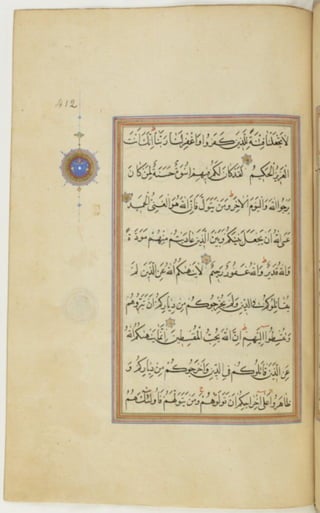 412
لَا تَجْعَلْنَا فِتْنَةً لِلَّذِينَ كَفَرُوا وَاغْفِرْ لَنَا رَبَّنَا إِنَّكَ أَنْتَ
الْعَزِيزُ الْحَكِيمُ لَقَدْ كَانَ لَكُمْ فِيهِمْ أُسْوَةٌ حَسَنَةٌ لِمَنْ كَانَ
يَرْجُوا اللَّهَ وَالْيَوْمَ الْآخِرَ وَمَنْ يَتَوَلَّ فَإِنَّ اللَّهَ هُوَ الْغَنِيُّ الْحَمِيدُ
عَسَى اللَّهُ أَنْ يَجْعَلَ بَيْنَكُمْ وَبَيْنَ الَّذِينَ عَادَيْتُمْ مِنْهُمْ مَوَدَّةً
وَاللَّهُ قَدِيرٌ وَاللَّهُ غَفُورٌ رَحِيمٌ لَا يَنْهَاكُمُ اللَّهُ عَنِ الَّذِينَ لَمْ
يُقَاتِلُوكُمْ فِي الدِّينِ وَلَمْ يُخْرِجُوكُمْ مِنْ دِيَارِكُمْ أَنْ تَبَرُّوهُمْ
وَتُقْسِطُوا إِلَيْهِمْ إِنَّ اللَّهَ يُحِبُّ الْمُقْسِطِينَ إِنَّمَا يَنْهَاكُمُ اللَّهُ
عَنِ الَّذِينَ قَاتَلُوكُمْ فِي الدِّينِ وَأَخْرَجُوكُمْ مِنْ دِيَارِكُمْ وَ
ظَاهَرُوا عَلَى إِخْرَاجِكُمْ أَنْ تَوَلَّوْهُمْ وَمَنْ يَتَوَلَّهُمْ فَأُولَئِكَ هُمُ